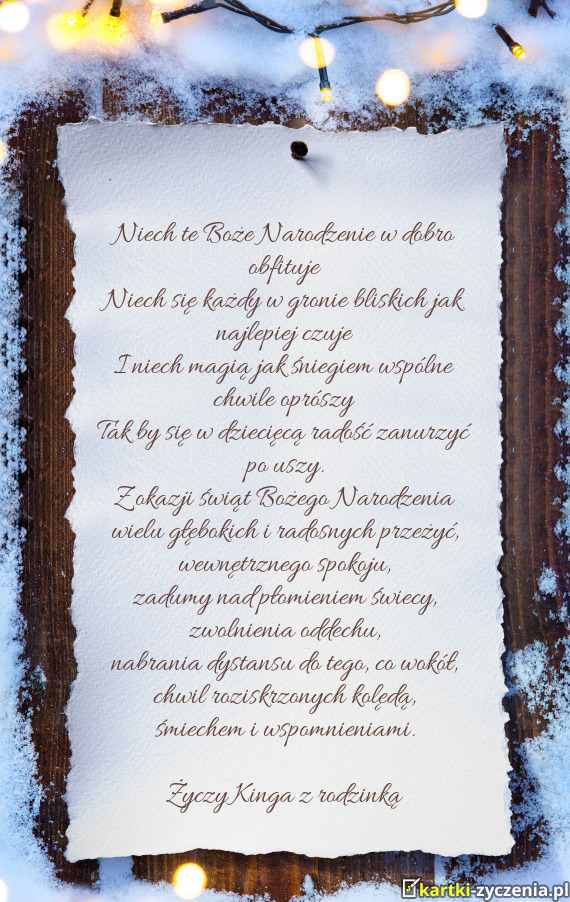 Niech te Boże Narodzenie w dobro
obfituje
Niech się każdy w gronie bliskich jak
najlepiej czuje
I niech magią jak śniegiem wspólne
chwile oprószy
Tak by się w dziecięcą radość zanurzyć
po uszy.
Z okazji świąt Bożego Narodzenia
wielu głębokich i radosnych przeżyć,
wewnętrznego spokoju,
zadumy nad płomieniem świecy,
zwolnienia oddechu,
nabrania dystansu do tego, co wokół,
chwil roziskrzonych kolędą,
śmiechem i wspomnieniami.
Życzy Kinga z rodzinką
kartki-zyczenia.pl